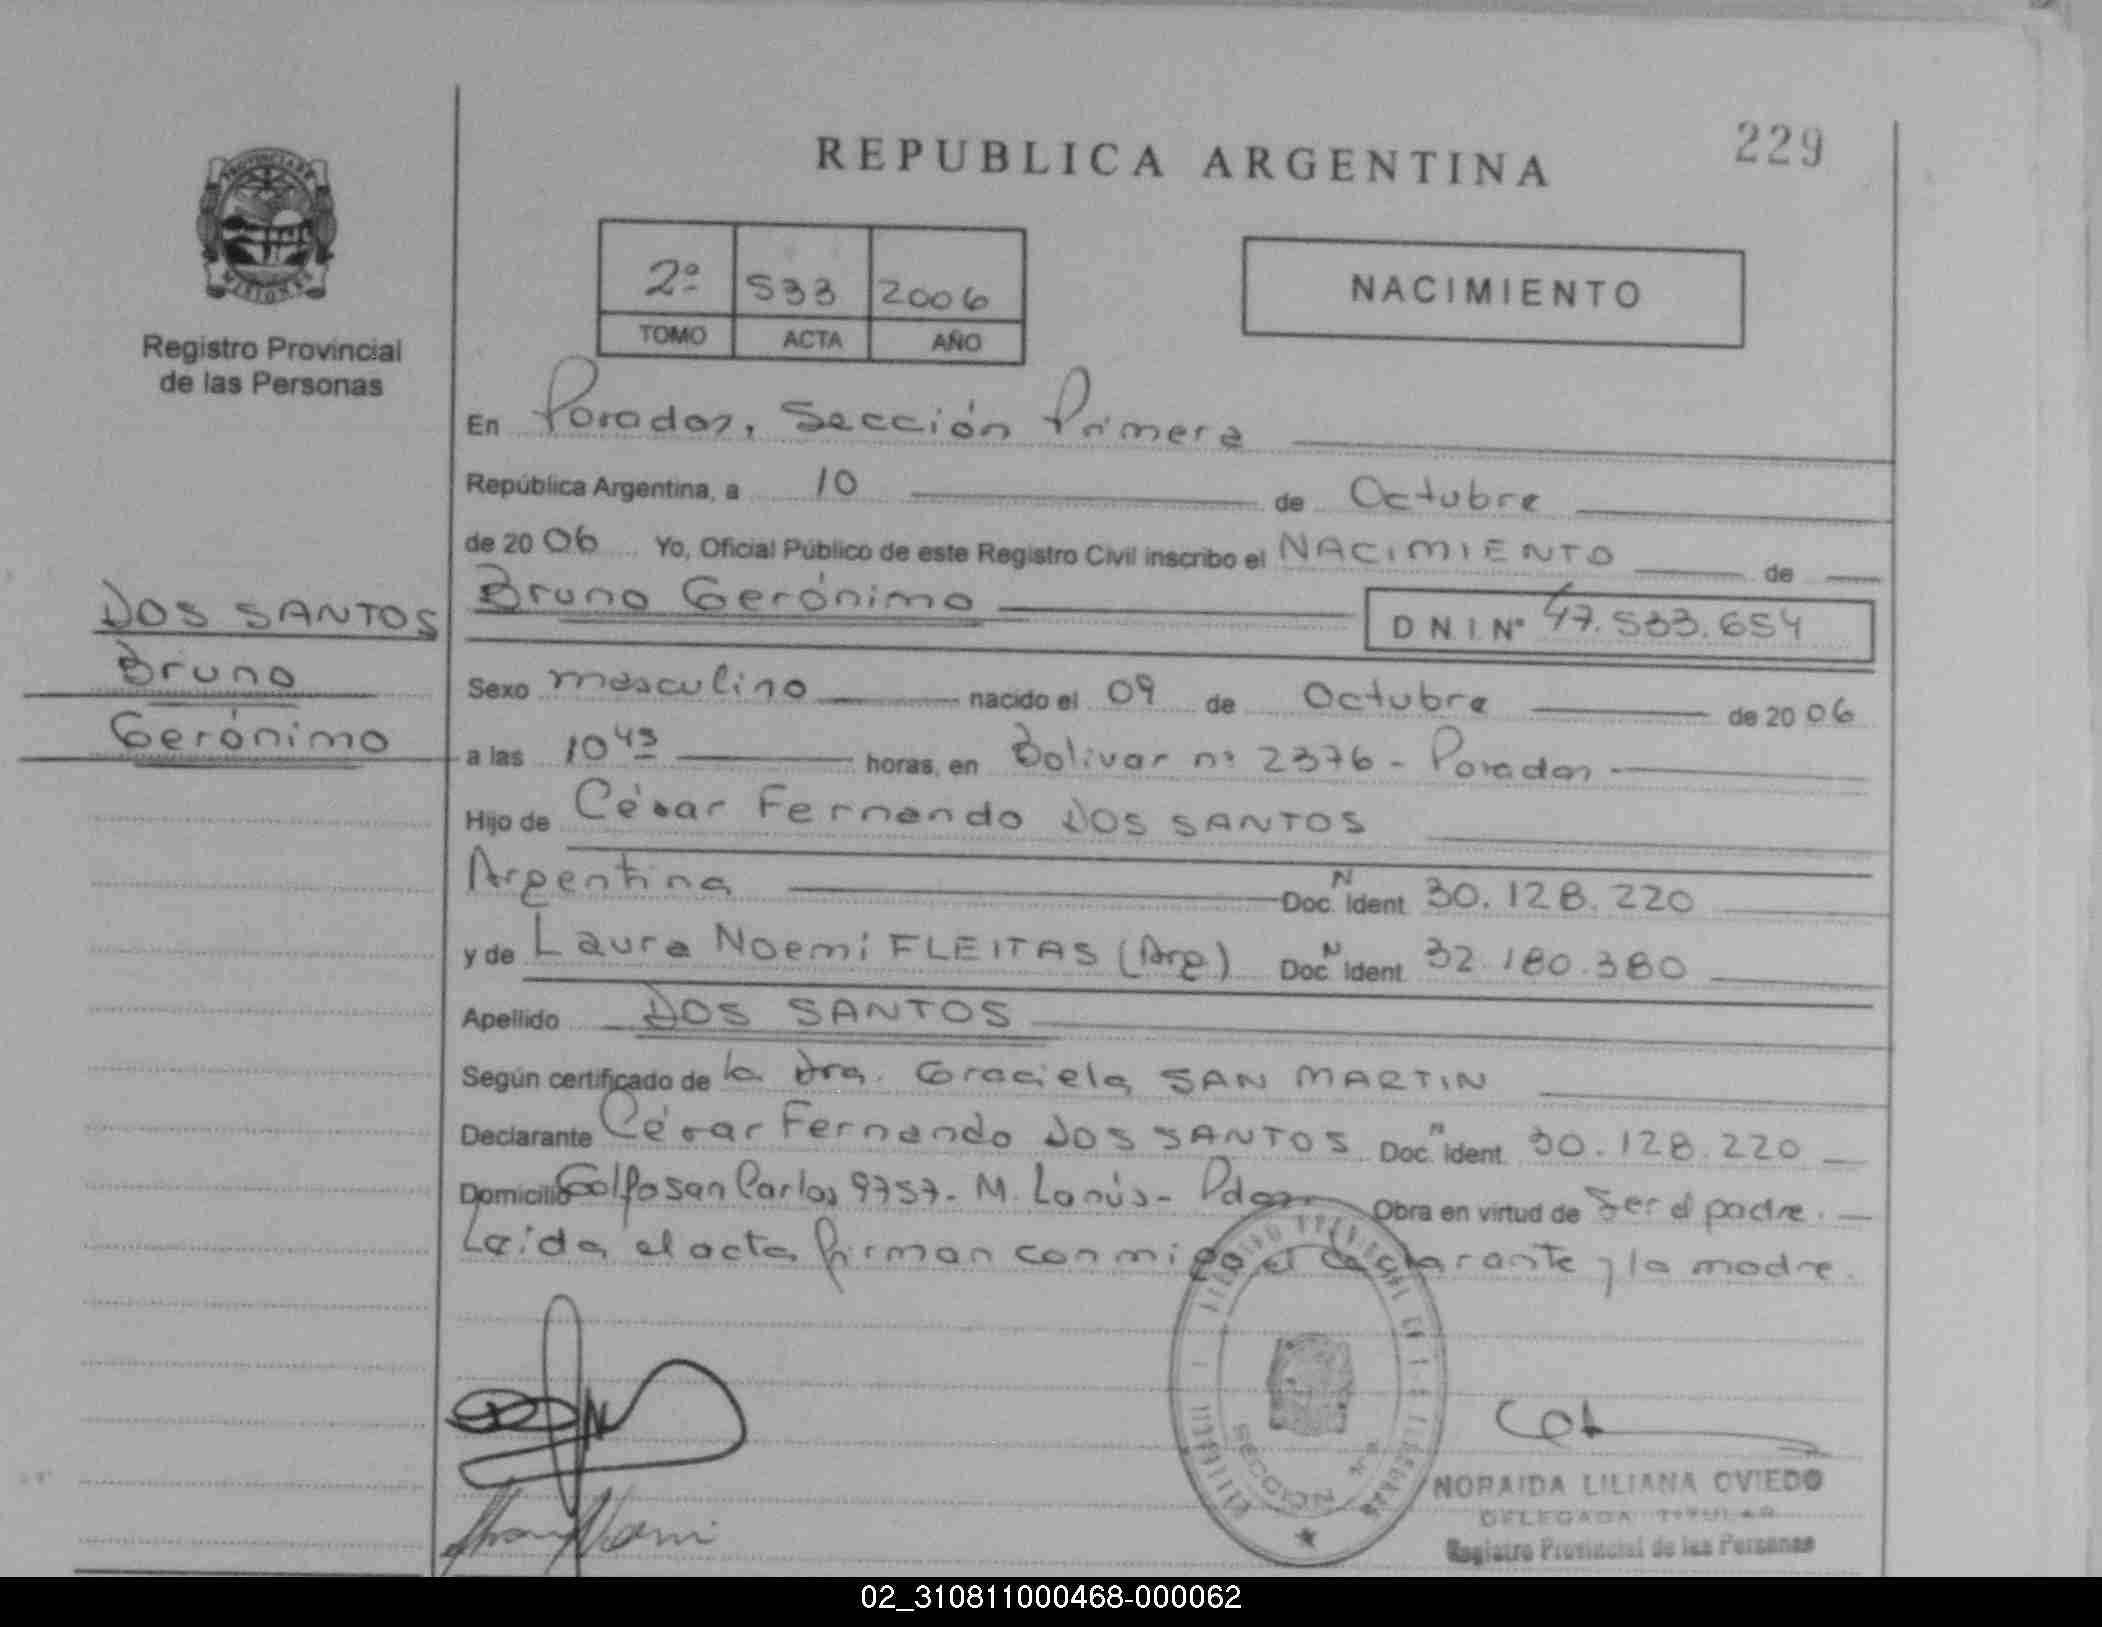 229
REPUBLICA ARGENTINA
2º 533 2006
TOMO ACTA AÑO
NACIMIENTO
PROVINCIA DE
MISIONES
Registro Provincial
de las Personas
En Posadas, Sección Primera
República Argentina, a 10 de Octubre
de 2006 Yo, Oficial Público de este Registro Civil inscribo el NACIMIENTO de
Bruno Gerónimo DNI Nº 47.533.654
DOS SANTOS
Bruno
Gerónimo
Sexo masculino nacido el 09 de Octubre de 2006
a las 10 45 horas, en Bolivar nº 2376 - Posadas
Hijo de César Fernando DOS SANTOS
Argentina Doc. N Ident. 30.128.220
y de Laura Noemi FLEITAS (Arg) Doc. N Ident. 32.180.380
Apellido DOS SANTOS
Según certificado de la Dra. Graciela SAN MARTIN
Declarante César Fernando DOS SANTOS Doc. N Ident. 30.128.220
Domicilio Golfo san Carlos 9757- M. Lanús- Pdas Obra en virtud de Ser el padre.
Leida el acta firman conmigo el declarante y la madre.
SECCION
NORAIDA LILIANA OVIEDO
DELEGADA TITULAR
Registro Provincial de las Personas
02_310811000468-000062